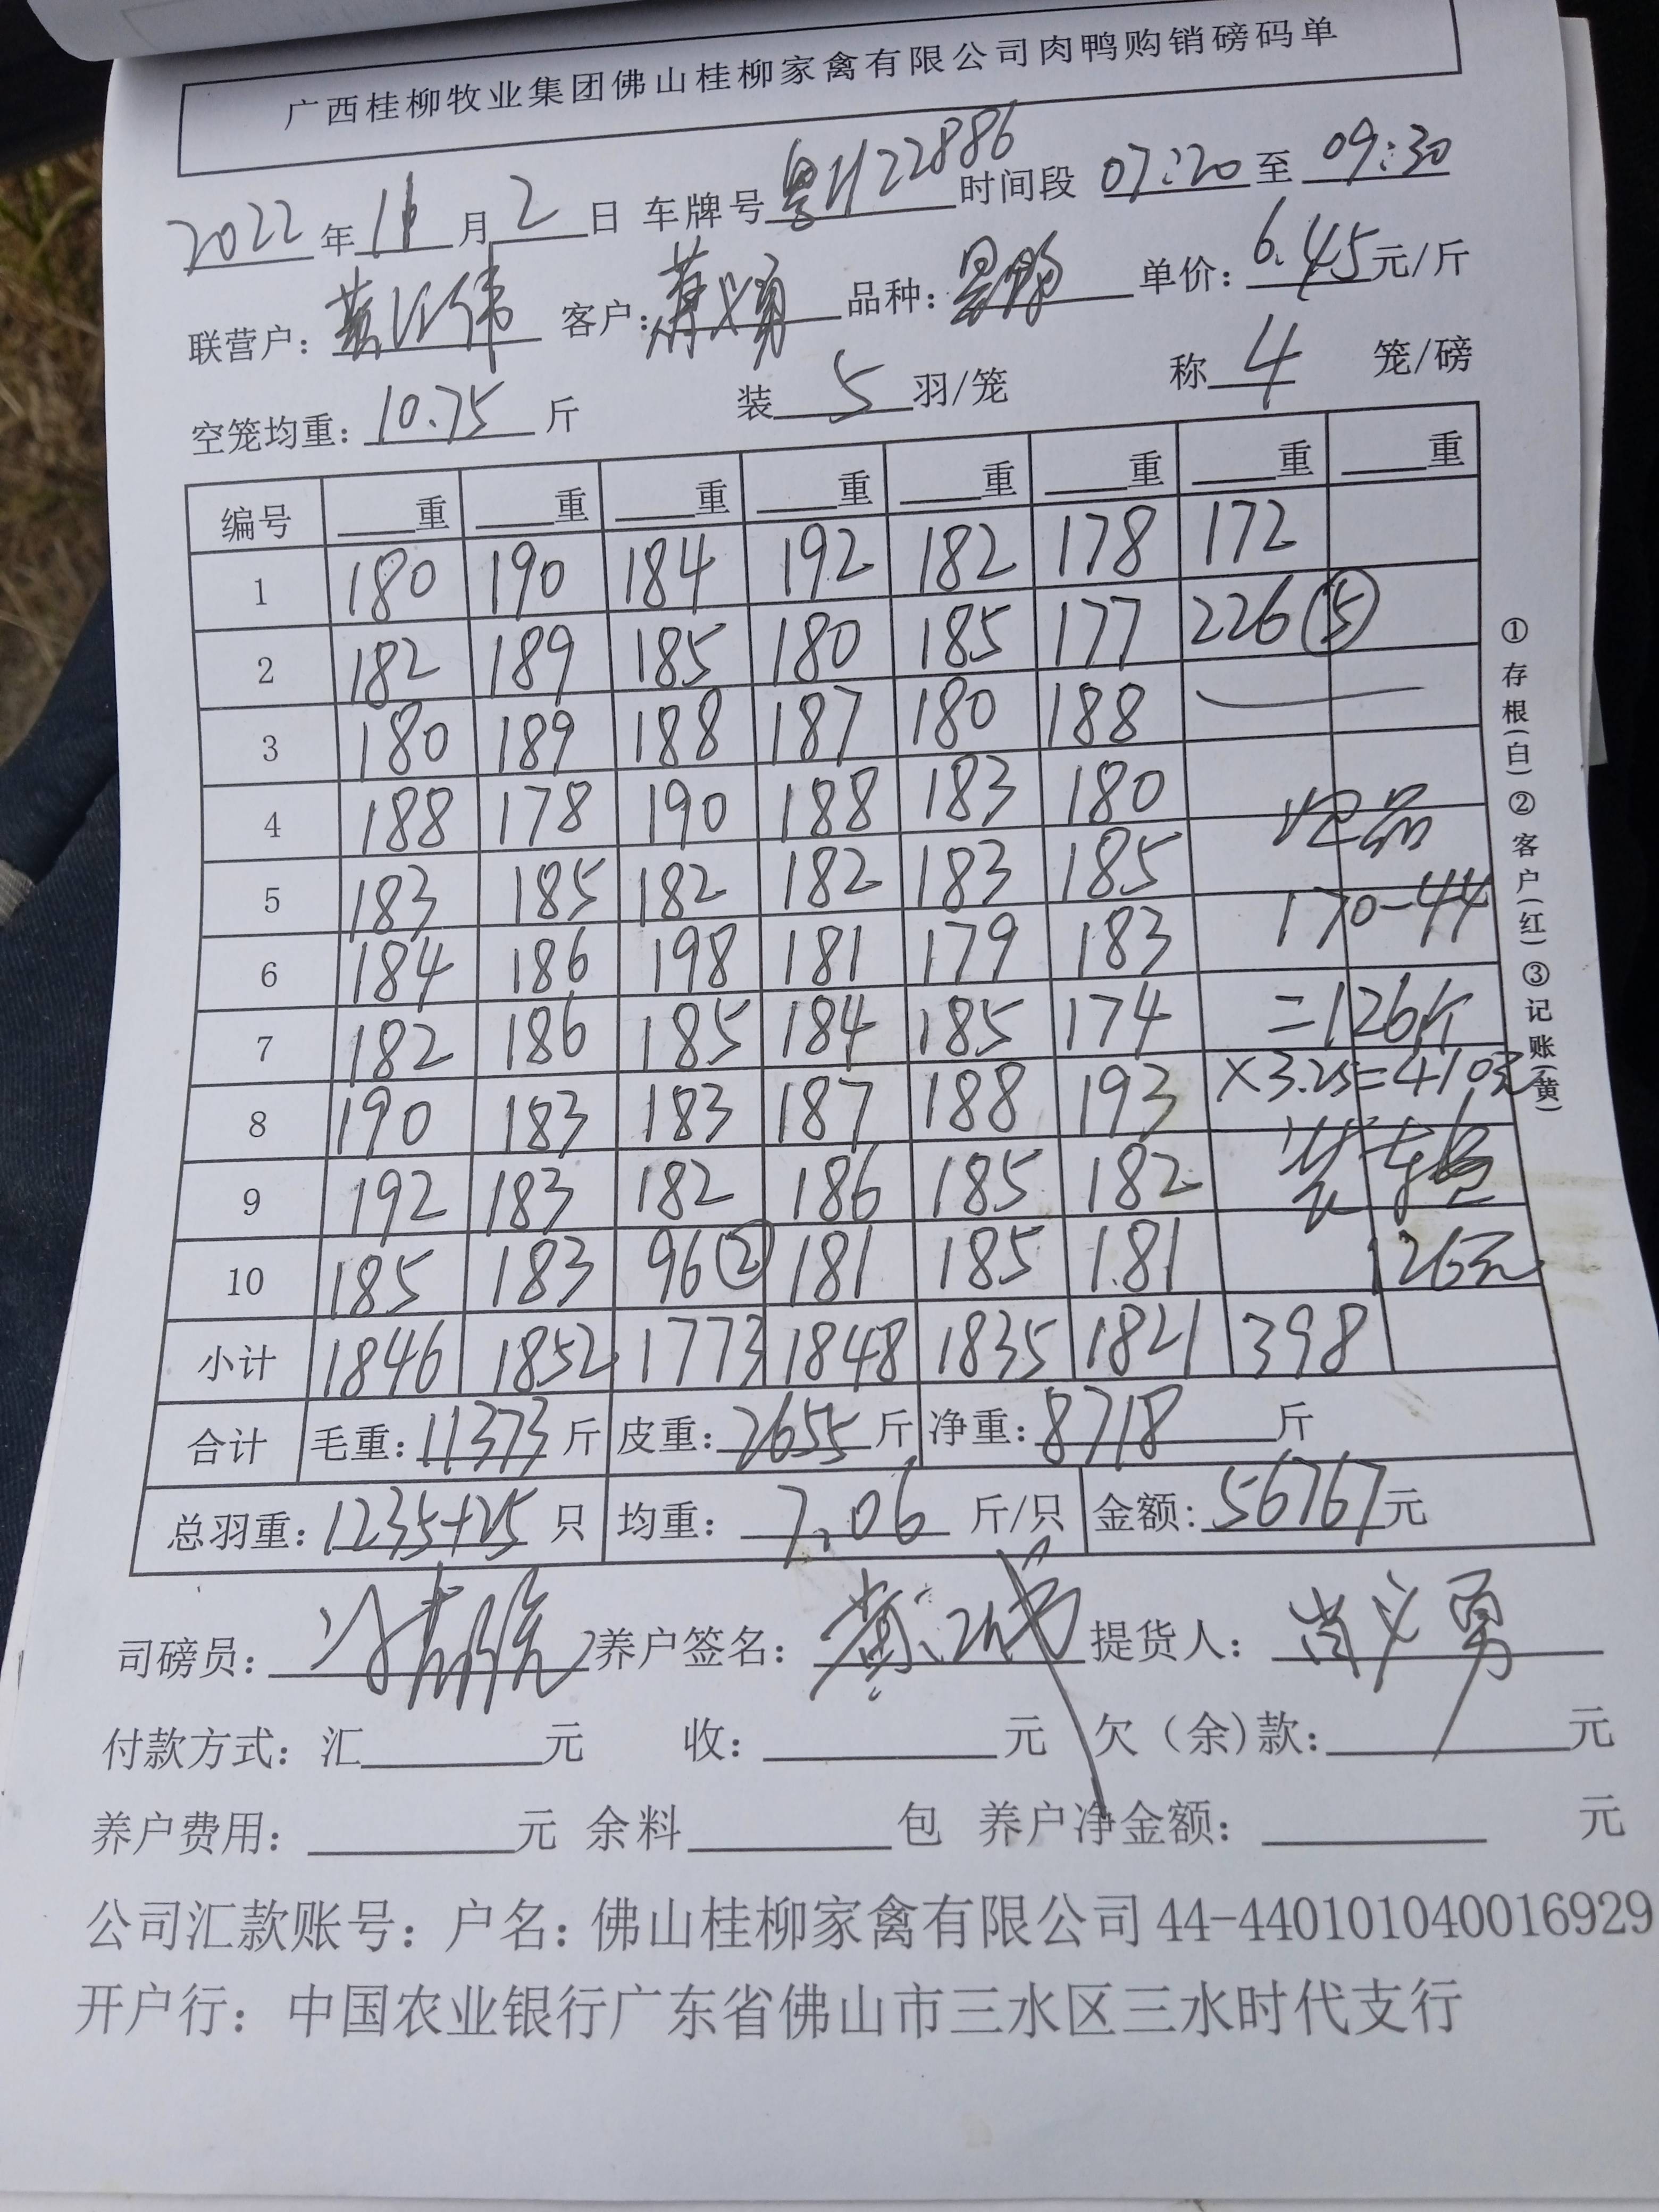 广西桂柳牧业集团佛山桂柳家禽有限公司肉鸭购销磅码单
2022 年 11 月 2 日 车牌号 粤 22886 时间段 07:20 至 09:30
联营户: 黄江伟 客户: 萧义勇 品种: 单价: 6.45 元/斤
空笼均重: 10.75 斤 装 5 羽/笼 称 4 笼/磅
编号 重 重 重 重 重 重 重 重
1 180 190 184 192 182 178 172
2 182 189 185 180 185 177 226 ⑤
3 180 189 188 187 180 188
4 188 178 190 188 183 180 次品
5 183 185 182 182 183 185 170-44
6 184 186 198 181 179 183
7 182 186 185 184 185 174 =126斤
8 190 183 183 187 188 193 ×3.25=410元
9 192 183 182 186 185 182 装车
10 185 183 96 ② 181 185 181 126元
小计 1846 1852 1773 1848 1835 1821 398
合计 毛重: 11373 斤 皮重: 2655 斤 净重: 8718 斤
总羽重: 1235+25 只 均重: 7.06 斤/只 金额: 56767 元
司磅员: 养户签名: 黄江伟 提货人: 肖义勇
付款方式: 汇 元 收: 元 欠(余)款: 元
养户费用: 元 余料 包 养户净金额: 元
公司汇款账号: 户名: 佛山桂柳家禽有限公司 44-440101040016929
开户行: 中国农业银行广东省佛山市三水区三水时代支行
①存根(白)②客户(红)③记账(黄)